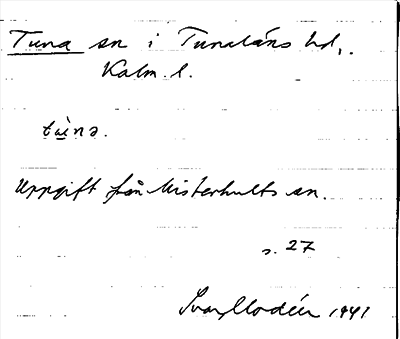 Tuna sn i Tunaläns hd,.
Kalm. l.
tùnə.
Uppgift från Misterhults sn.
s. 27
Ivar Modéer 1941